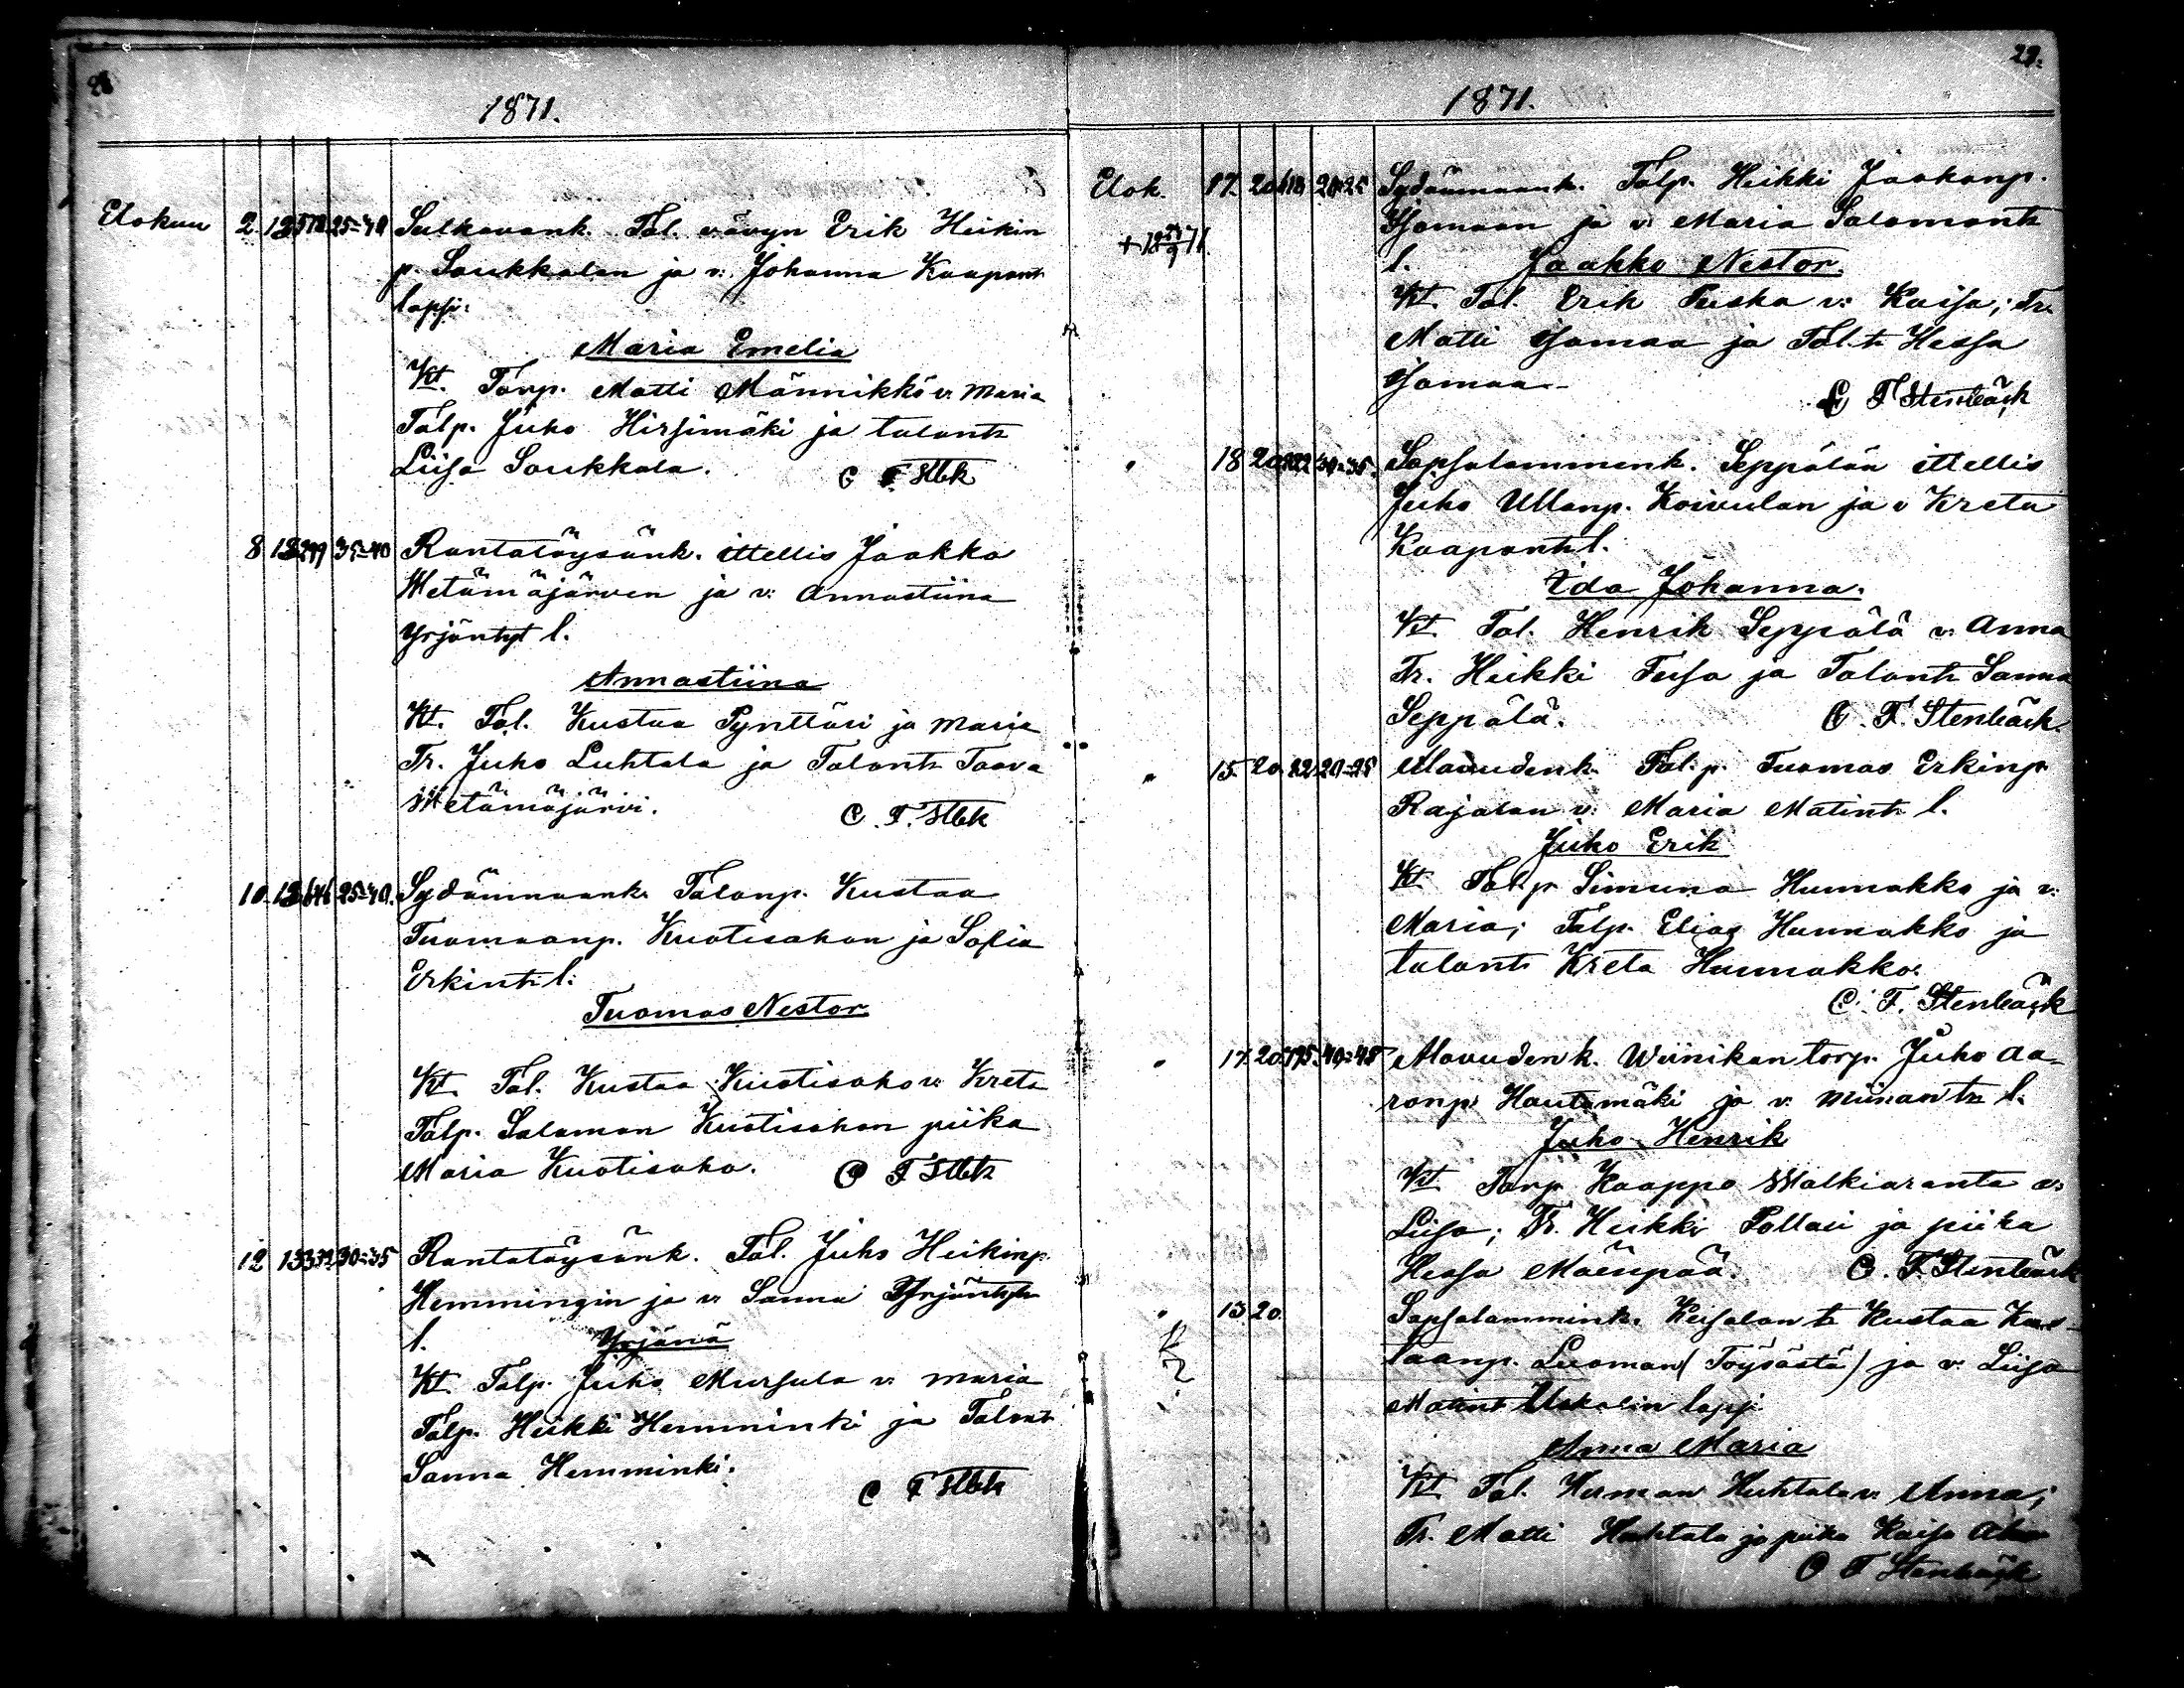 1871.
Elokuu 2. 13 25=40 Sulkavank. Tal. vävyn Erik Heikin
p. Soukkalan ja v: Johanna Kaapont
lapsi:
Maria Emelia
Kt. Torp. Matti Männikkö v: Maria
Talp. Juho Hirsimäki ja talont
Liisa Soukkala. C F Stbk
8 13 299 35=40 Rantatöysänk. ittellis Jaakko
Wetämäjärven ja v: Annastiina
Yrjöntyt l.
Annastiina
Kt. Tal. Kustaa Pynttäri ja Maria
Tr. Juho Luhtala ja Talont Taava
Wetämäjärvi. C. F. Stbk
10. 13 646 25=40. Sydänmaank. Talonp. Kustaa
Tuomaanp. Kuotisahon ja Sofia
Erkint l:
Tuomas Nestor
Kt. Tal. Kustaa Kuotisaho v: Kreta
Talp. Salomon Kuotisahon piika
Maria Kuotisaho. C F Stbk
12 13 332 30=35 Rantatöysänk. Tal. Juho Heikinp.
Hemmingin ja v: Sanna Yrjöntyt
l. Yrjänä
Kt. Talp. Juho Mursula v: Maria
Talp. Heikki Hemminki ja Talont
Sanna Hemminki. C F Stbk
29.
1871.
Elok. 17. 20 618 20=25 Sydänmaank. Talp. Heikki Jaakonp.
Yjomaan ja v: Maria Salomont
+ 18 9 71.
l. Jaakko Nestor.
Kt. Tal. Erik Tuska v: Kaisa; Tr.
Matti Yjomaa ja Tal.t. Hessa
Yjomaa C F Stenbäck
" 18 20 222 30=35. Sapsalamminnk. Seppälän ittellis
Juho Ullanp. Koivulan ja v Kreta
Kaapont l.
Ida Johanna.
Kt. Tal. Henrik Seppälä v: Anna
Tr. Heikki Tusa ja Talont Sanna
Seppälä. C. F. Stenbäck.
" 15 20 22 20=25 Alavudenk. Tal.p. Tuomas Erkinp
Rajalan v: Maria Matint l.
Juho Erik
Kt. Talp. Simuna Hunnakko ja v:
Maria; Talp. Elias Hunnakko ja
talont Kreta Hunnakko.
C. F. Stenbäck
" 17 20 775 40=45 Alavudenk. Wiinikan torp. Juho Aa-
ronp. Hautamäki ja v: Miinant l.
Juho Henrik
Kt. Torp Kaappo Walkiaranta v:
Liisa; Tr. Heikki Pollari ja piika
Hessa Mäenpää. C. F. Stenbäck
" 13 20 Sapsalammink. Keisalan t. Kustaa Kus-
taanp. Luoman (Töysästä) ja v: Liisa
Matint Uskalin lapsi
Anna Maria
Kt. Tal. Herman Huhtala v: Anna;
Tr. Matti Huhtala ja piika Kaisa
C F Stenbäck